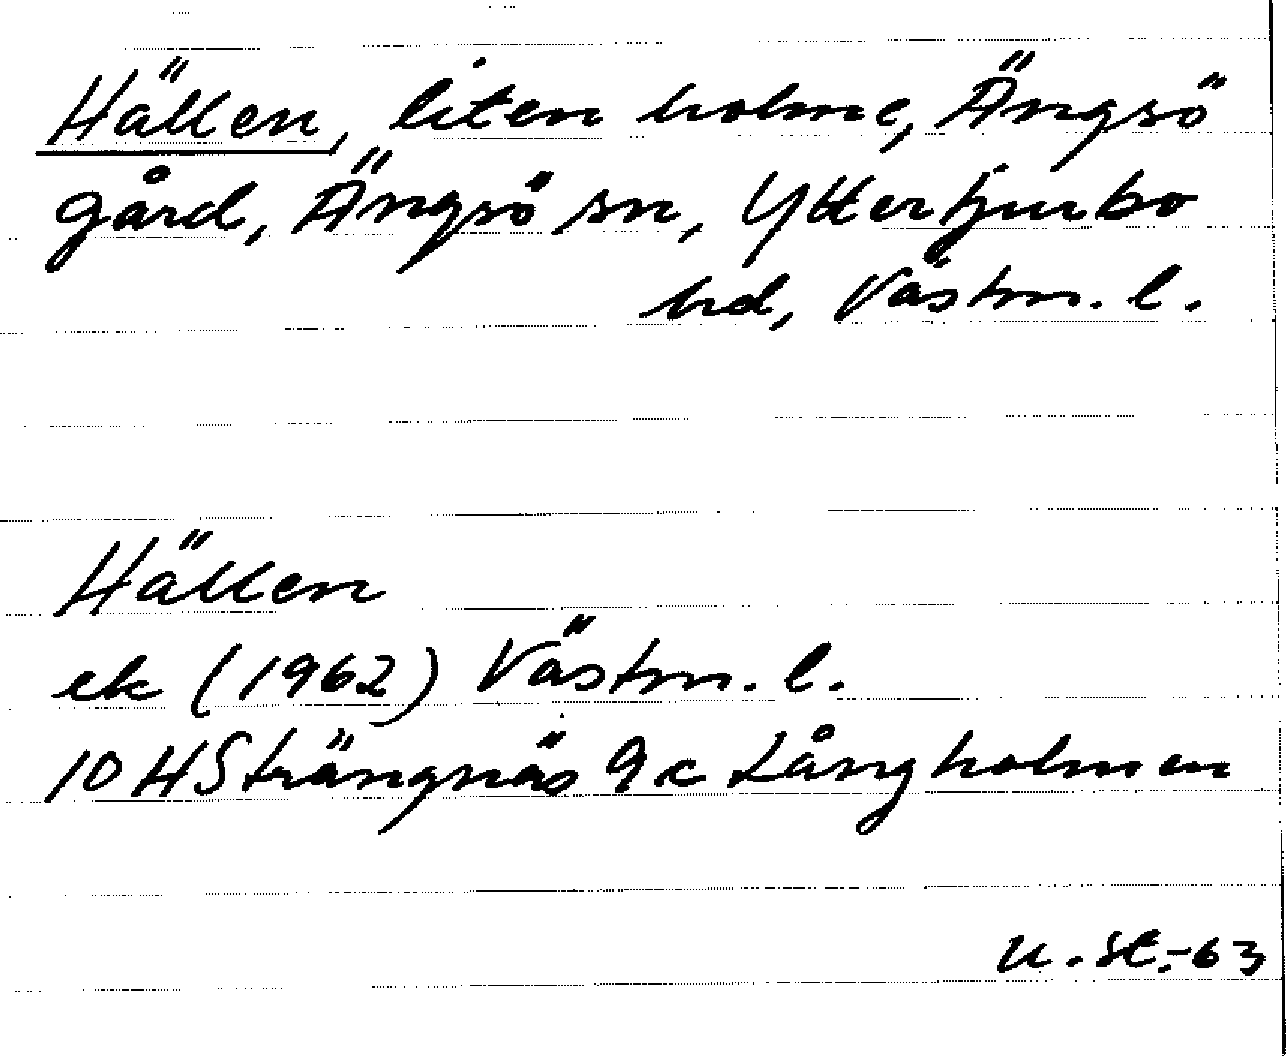 Hällen, liten holme, Ängsö
gård, Ängsö sn, Yttertjurbo
hd, Västm. l.
Hällen
ek (1962) Västm. l.
10 H Strängnäs 9 c Långholmen
U. St.-63